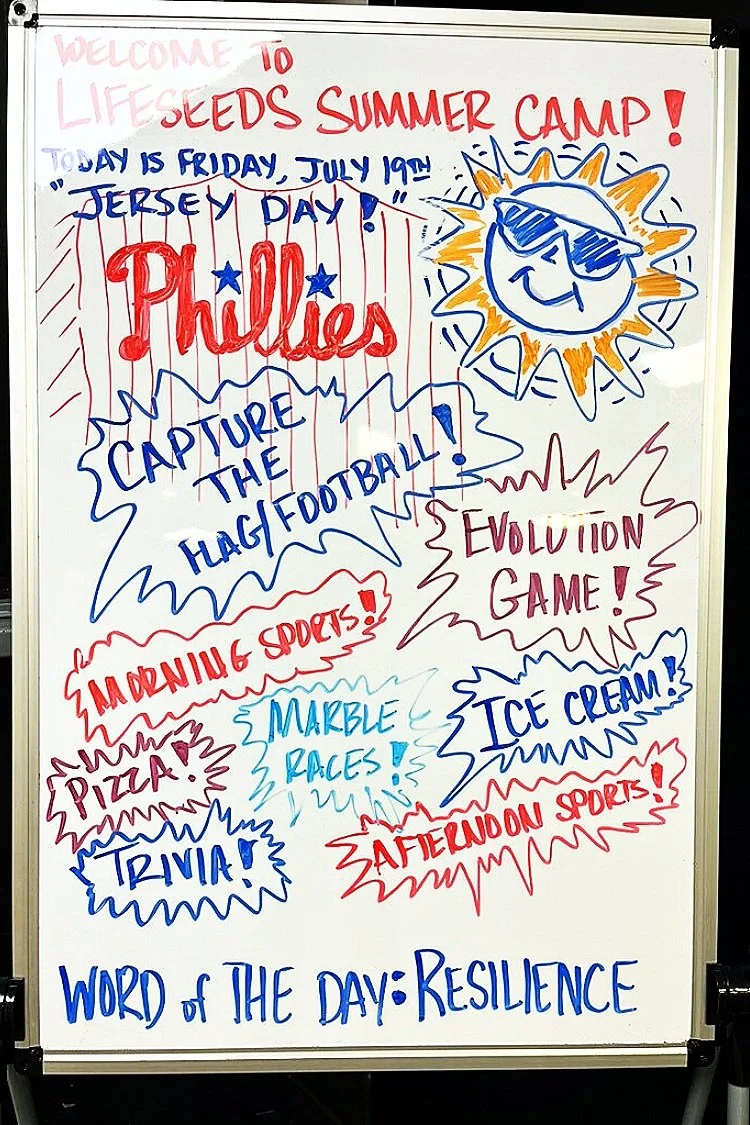 WELCOME TO
LIFESEEDS SUMMER CAMP!
TODAY IS FRIDAY, JULY 19TH
"JERSEY DAY!"
Phillies
CAPTURE
THE
FLAG/FOOTBALL!
EVOLUTION
GAME!
MORNING SPORTS!
MARBLE
RACES!
ICE CREAM!
PIZZA!
TRIVIA!
AFTERNOON SPORTS!
WORD of THE DAY: RESILIENCE